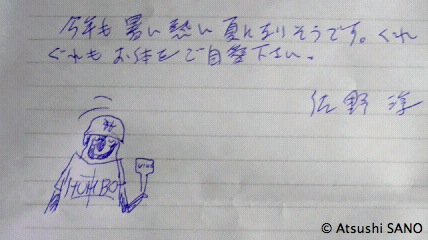 今年も暑い熱い夏になりそうです。くれ
ぐれもお体をご自愛下さい。
佐野 淳
HUHBO
© Atsushi SANO